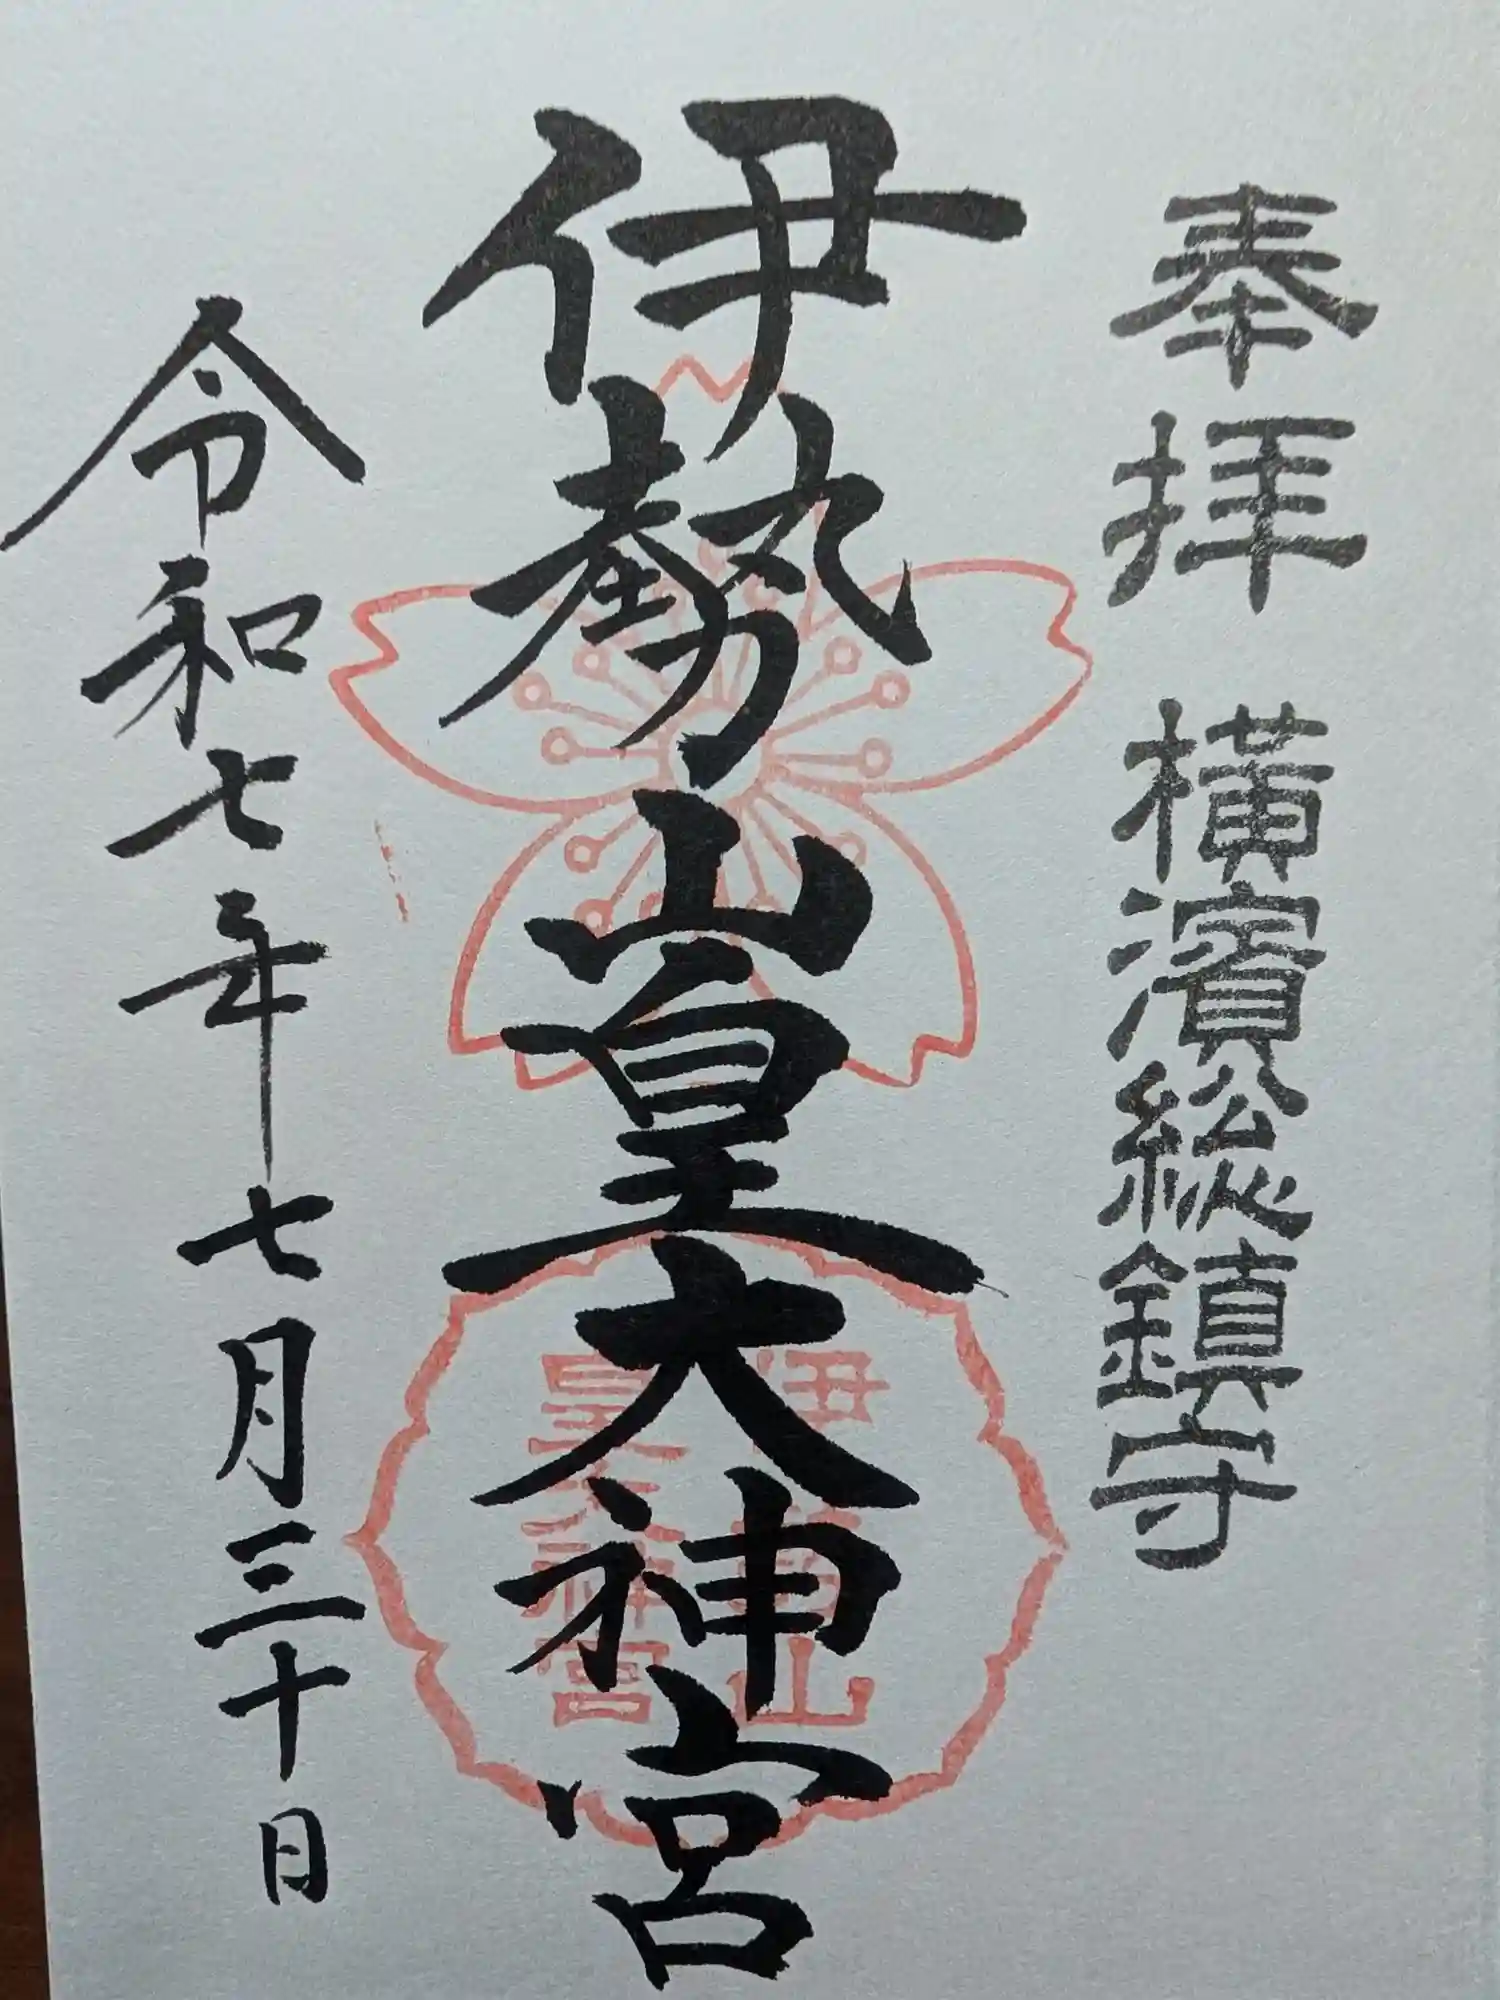 奉拝 横濱総鎮守
伊勢山皇大神宮
伊勢山
皇大神宮
令和七年七月三十日